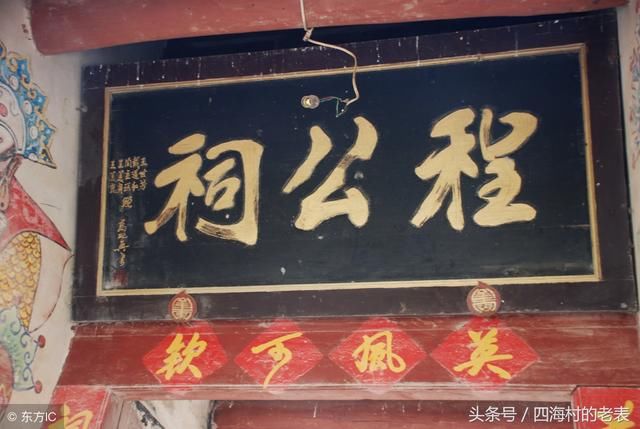 程公祠
英风可钦
© 东方IC
头条号 / 四海村的老表